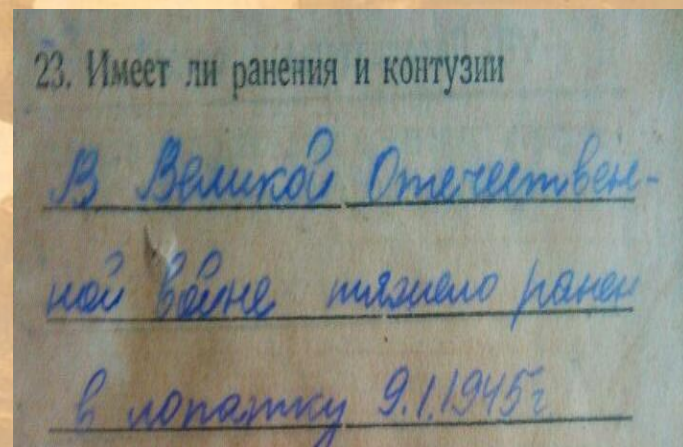 23. Имеет ли ранения и контузии
В Великой Отечествен-
ной войне тяжело ранен
в лопатку 9.1.1945г